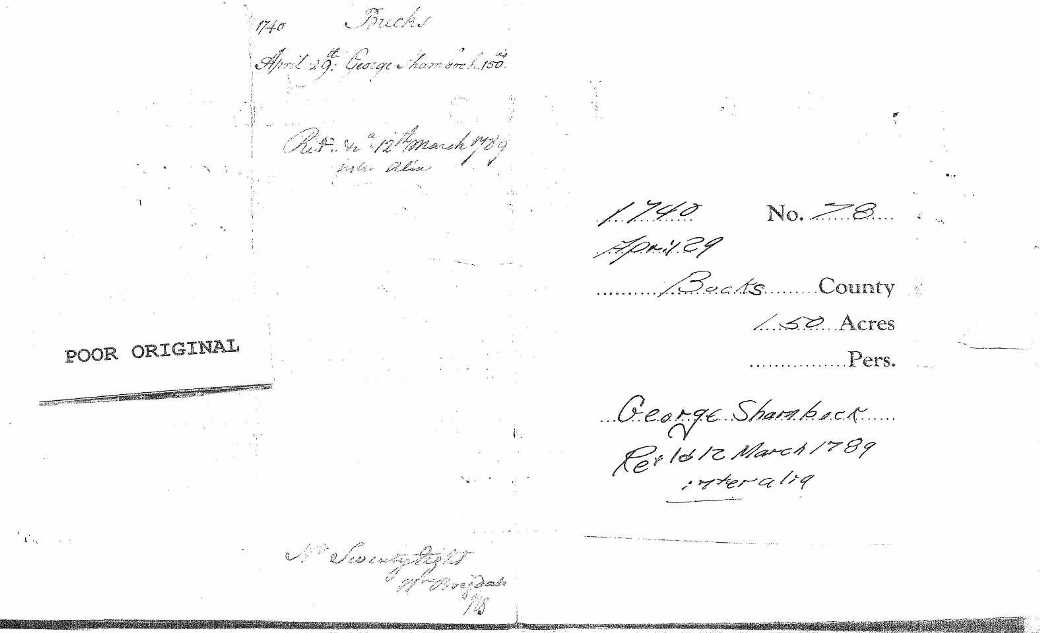 1740 Bucks
April 29th George Shambock 150 as
Ret'd &c a 12th March 1789
inter Alia
No Seventy Eight
Wm
POOR ORIGINAL
1740 No. 78
April 29
Bucks County
150 Acres
Pers.
George Shambock
Ret'd 12 March 1789
inter alia